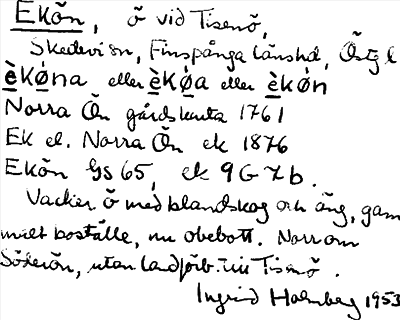 Ekön, ö vid Tisenö,
Skedevi sn, Finspånga länshd, Östg l
èkǿna eller èkǿa eller èkǿn
Norra Ön gårdskarta 1761
Ek el. Norra Ön ek 1876
Ekön GS 65, ek 9G 7b.
Vacker ö med blandskog och äng, gam
malt boställe, nu obebott. Norr om
Söderön, utan landförb. till Tisenö.
Ingrid Holmberg 1953